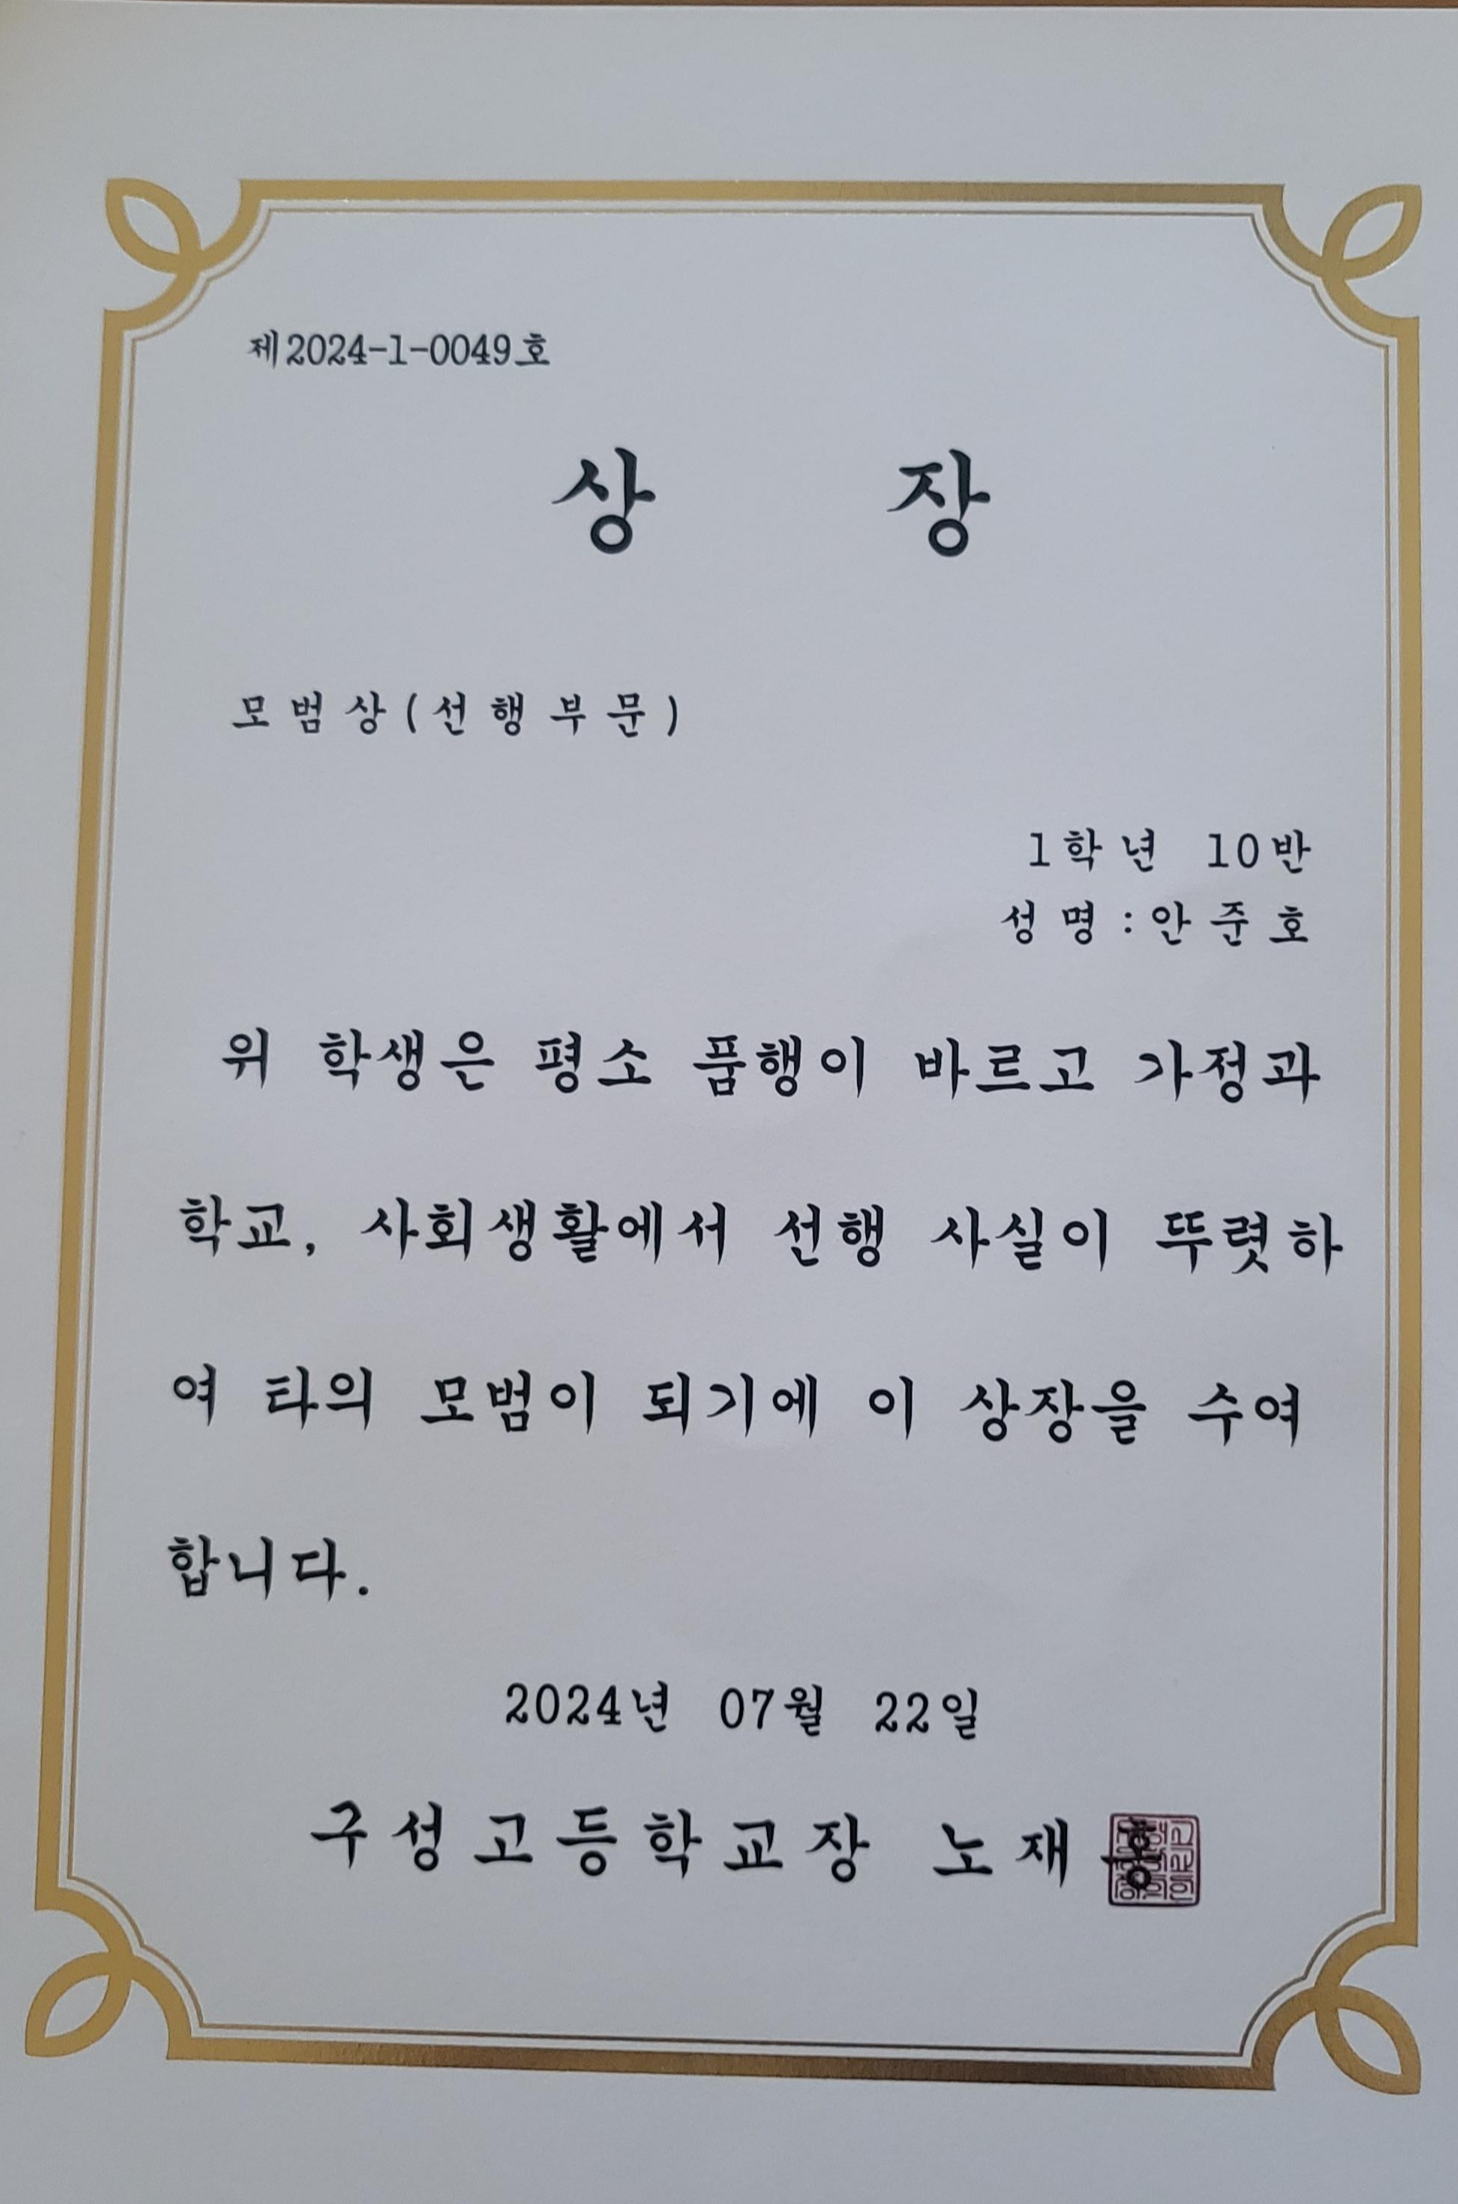 제2024-1-0049호
상 장
모범상(선행부문)
1학년 10반
성명:안준호
위 학생은 평소 품행이 바르고 가정과
학교, 사회생활에서 선행 사실이 뚜렷하
여 타의 모범이 되기에 이 상장을 수여
합니다.
2024년 07월 22일
구성고등학교장 노재